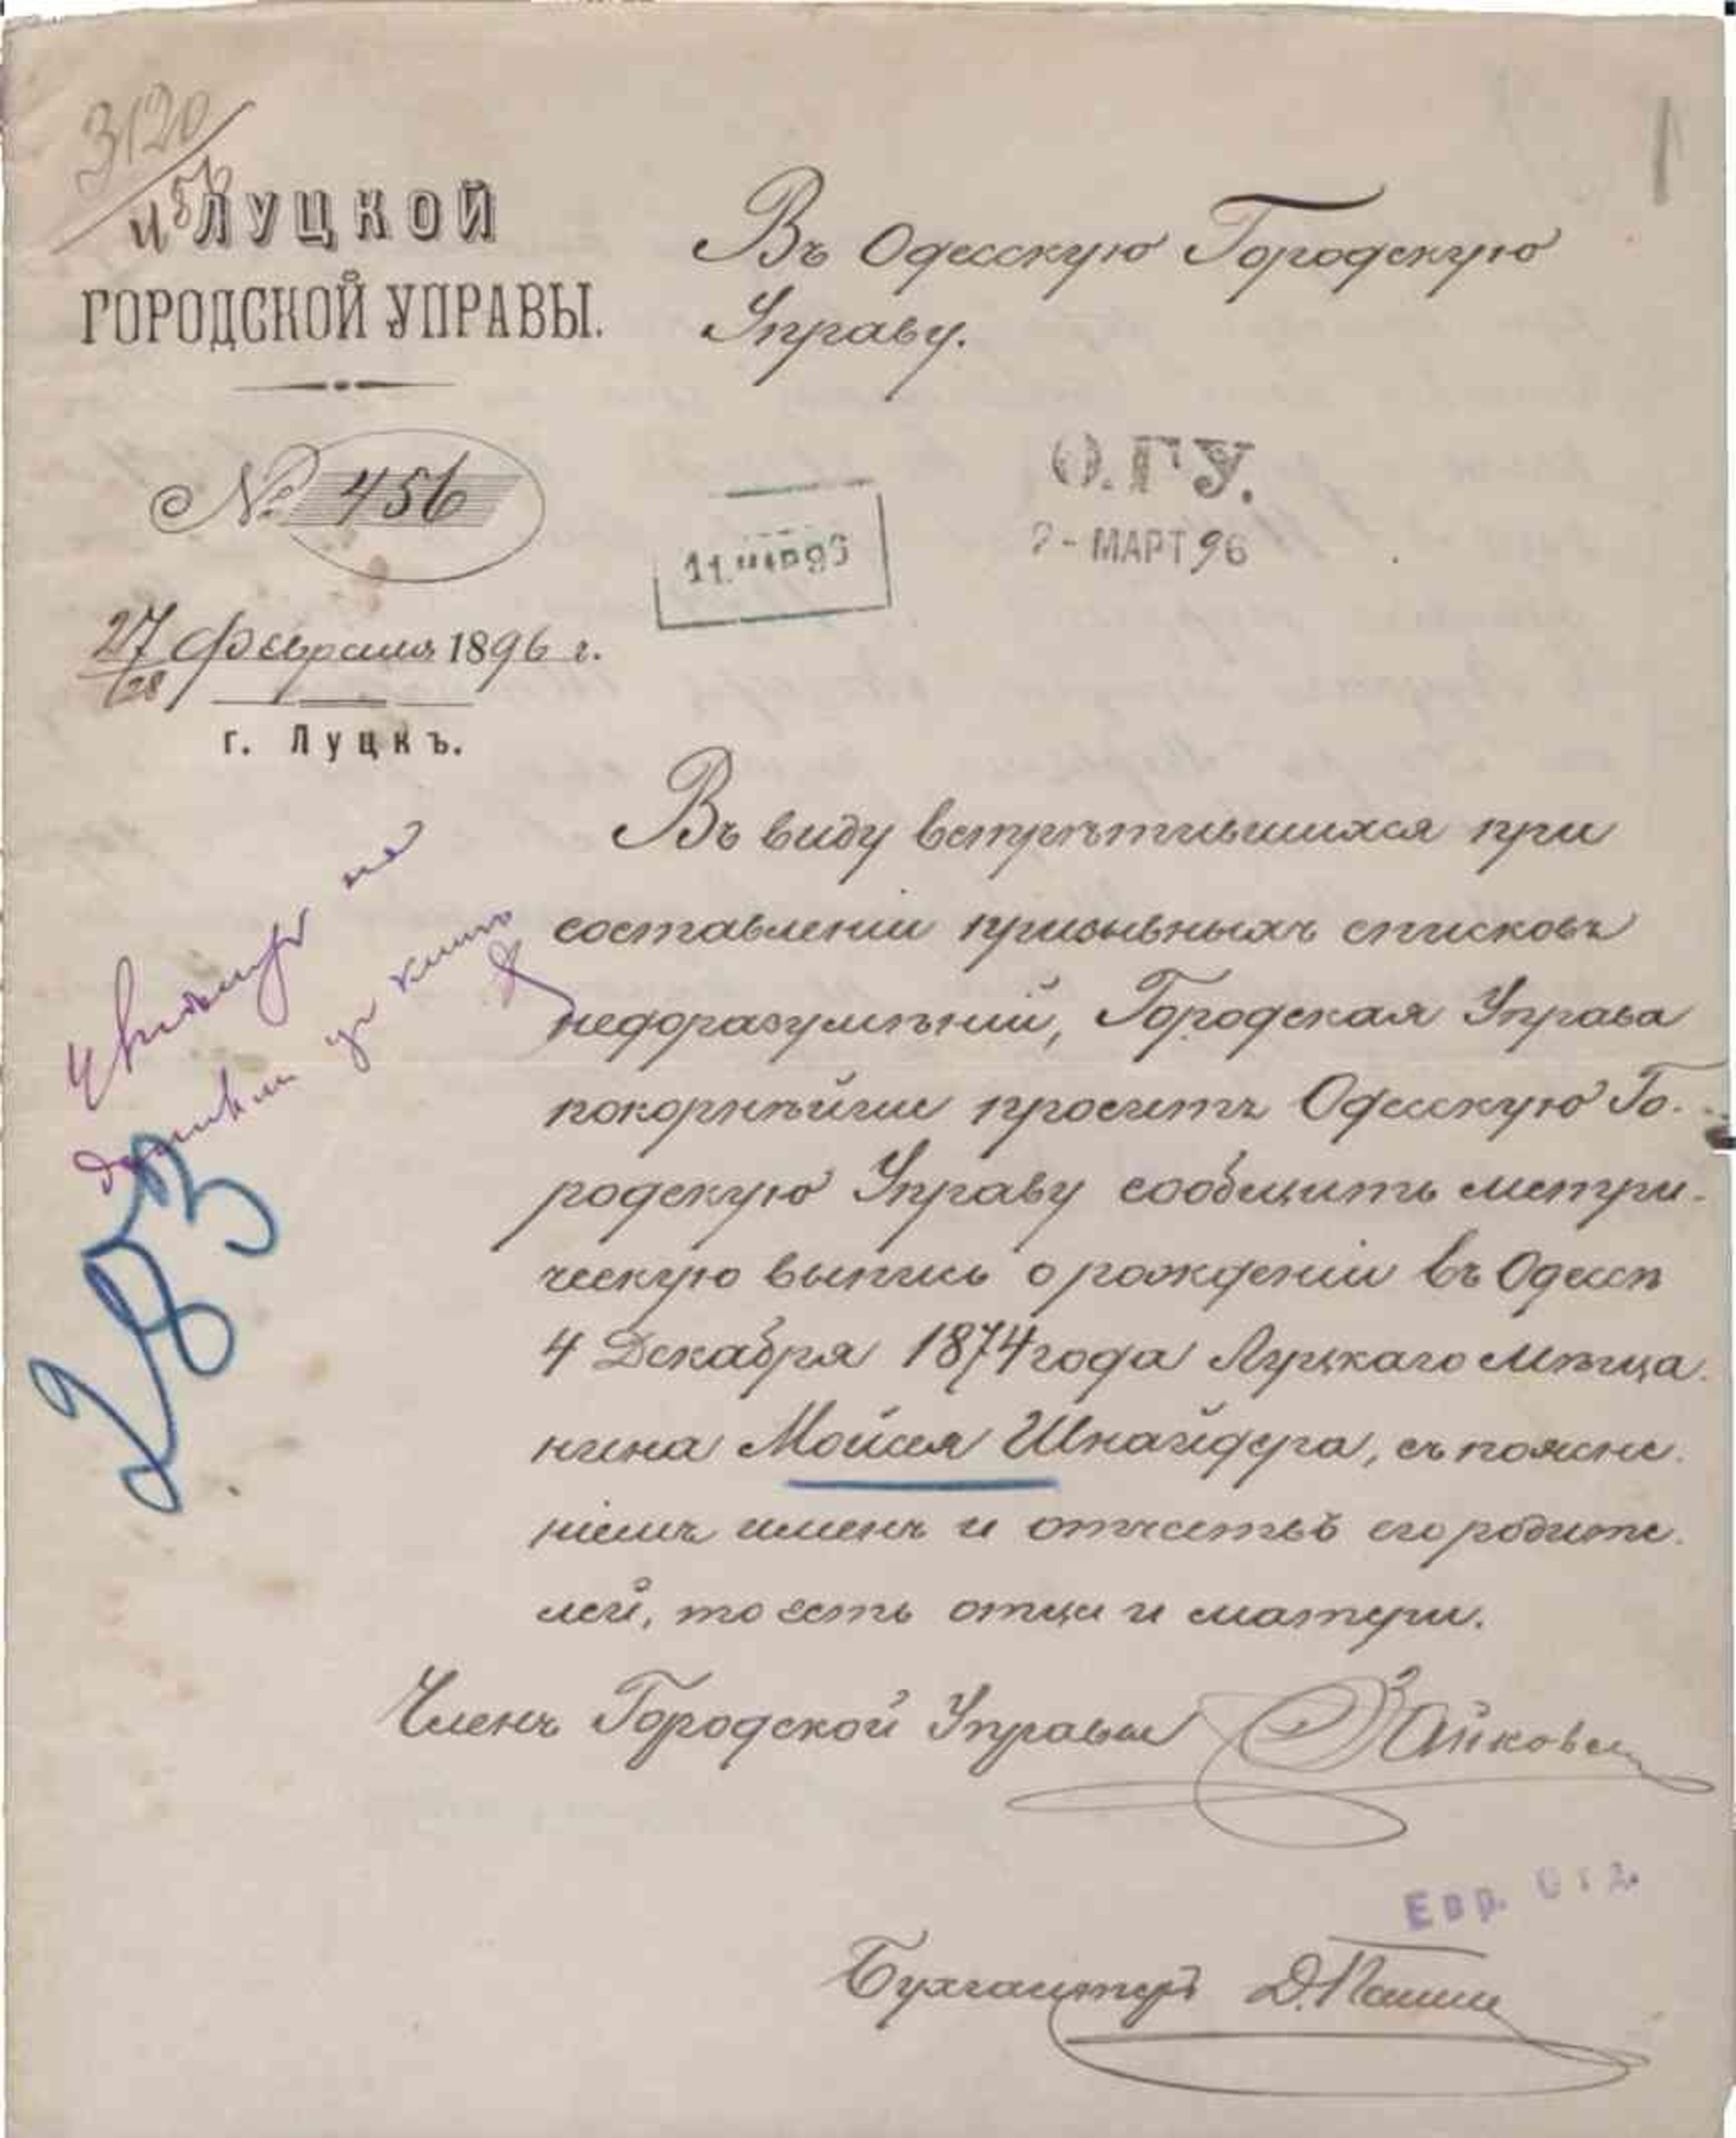 3120
456
ЛУЦКОЙ
ГОРОДСКОЙ УПРАВЫ.
№ 456
27/28 Февраля 1896 г.
г. Луцкъ.
Въ Одесскую Городскую
Управу.
О.Г.У.
2 - МАРТ 96
11. МАР 96
Въ виду встрѣтившихся при
составленіи призывныхъ списковъ
недоразумѣній, Городская Управа
покорнѣйше проситъ Одесскую Го-
родскую Управу сообщить метри-
ческую выпись о рожденіи въ Одессѣ
4 Декабря 1874 года Луцкаго мѣща-
нина Мойсея Шнайдера, съ поясне-
ніемъ именъ и отчествъ его родите-
лей, то есть отца и матери.
283
Членъ Городской Управы
Евр. Отд.
Бухгалтеръ